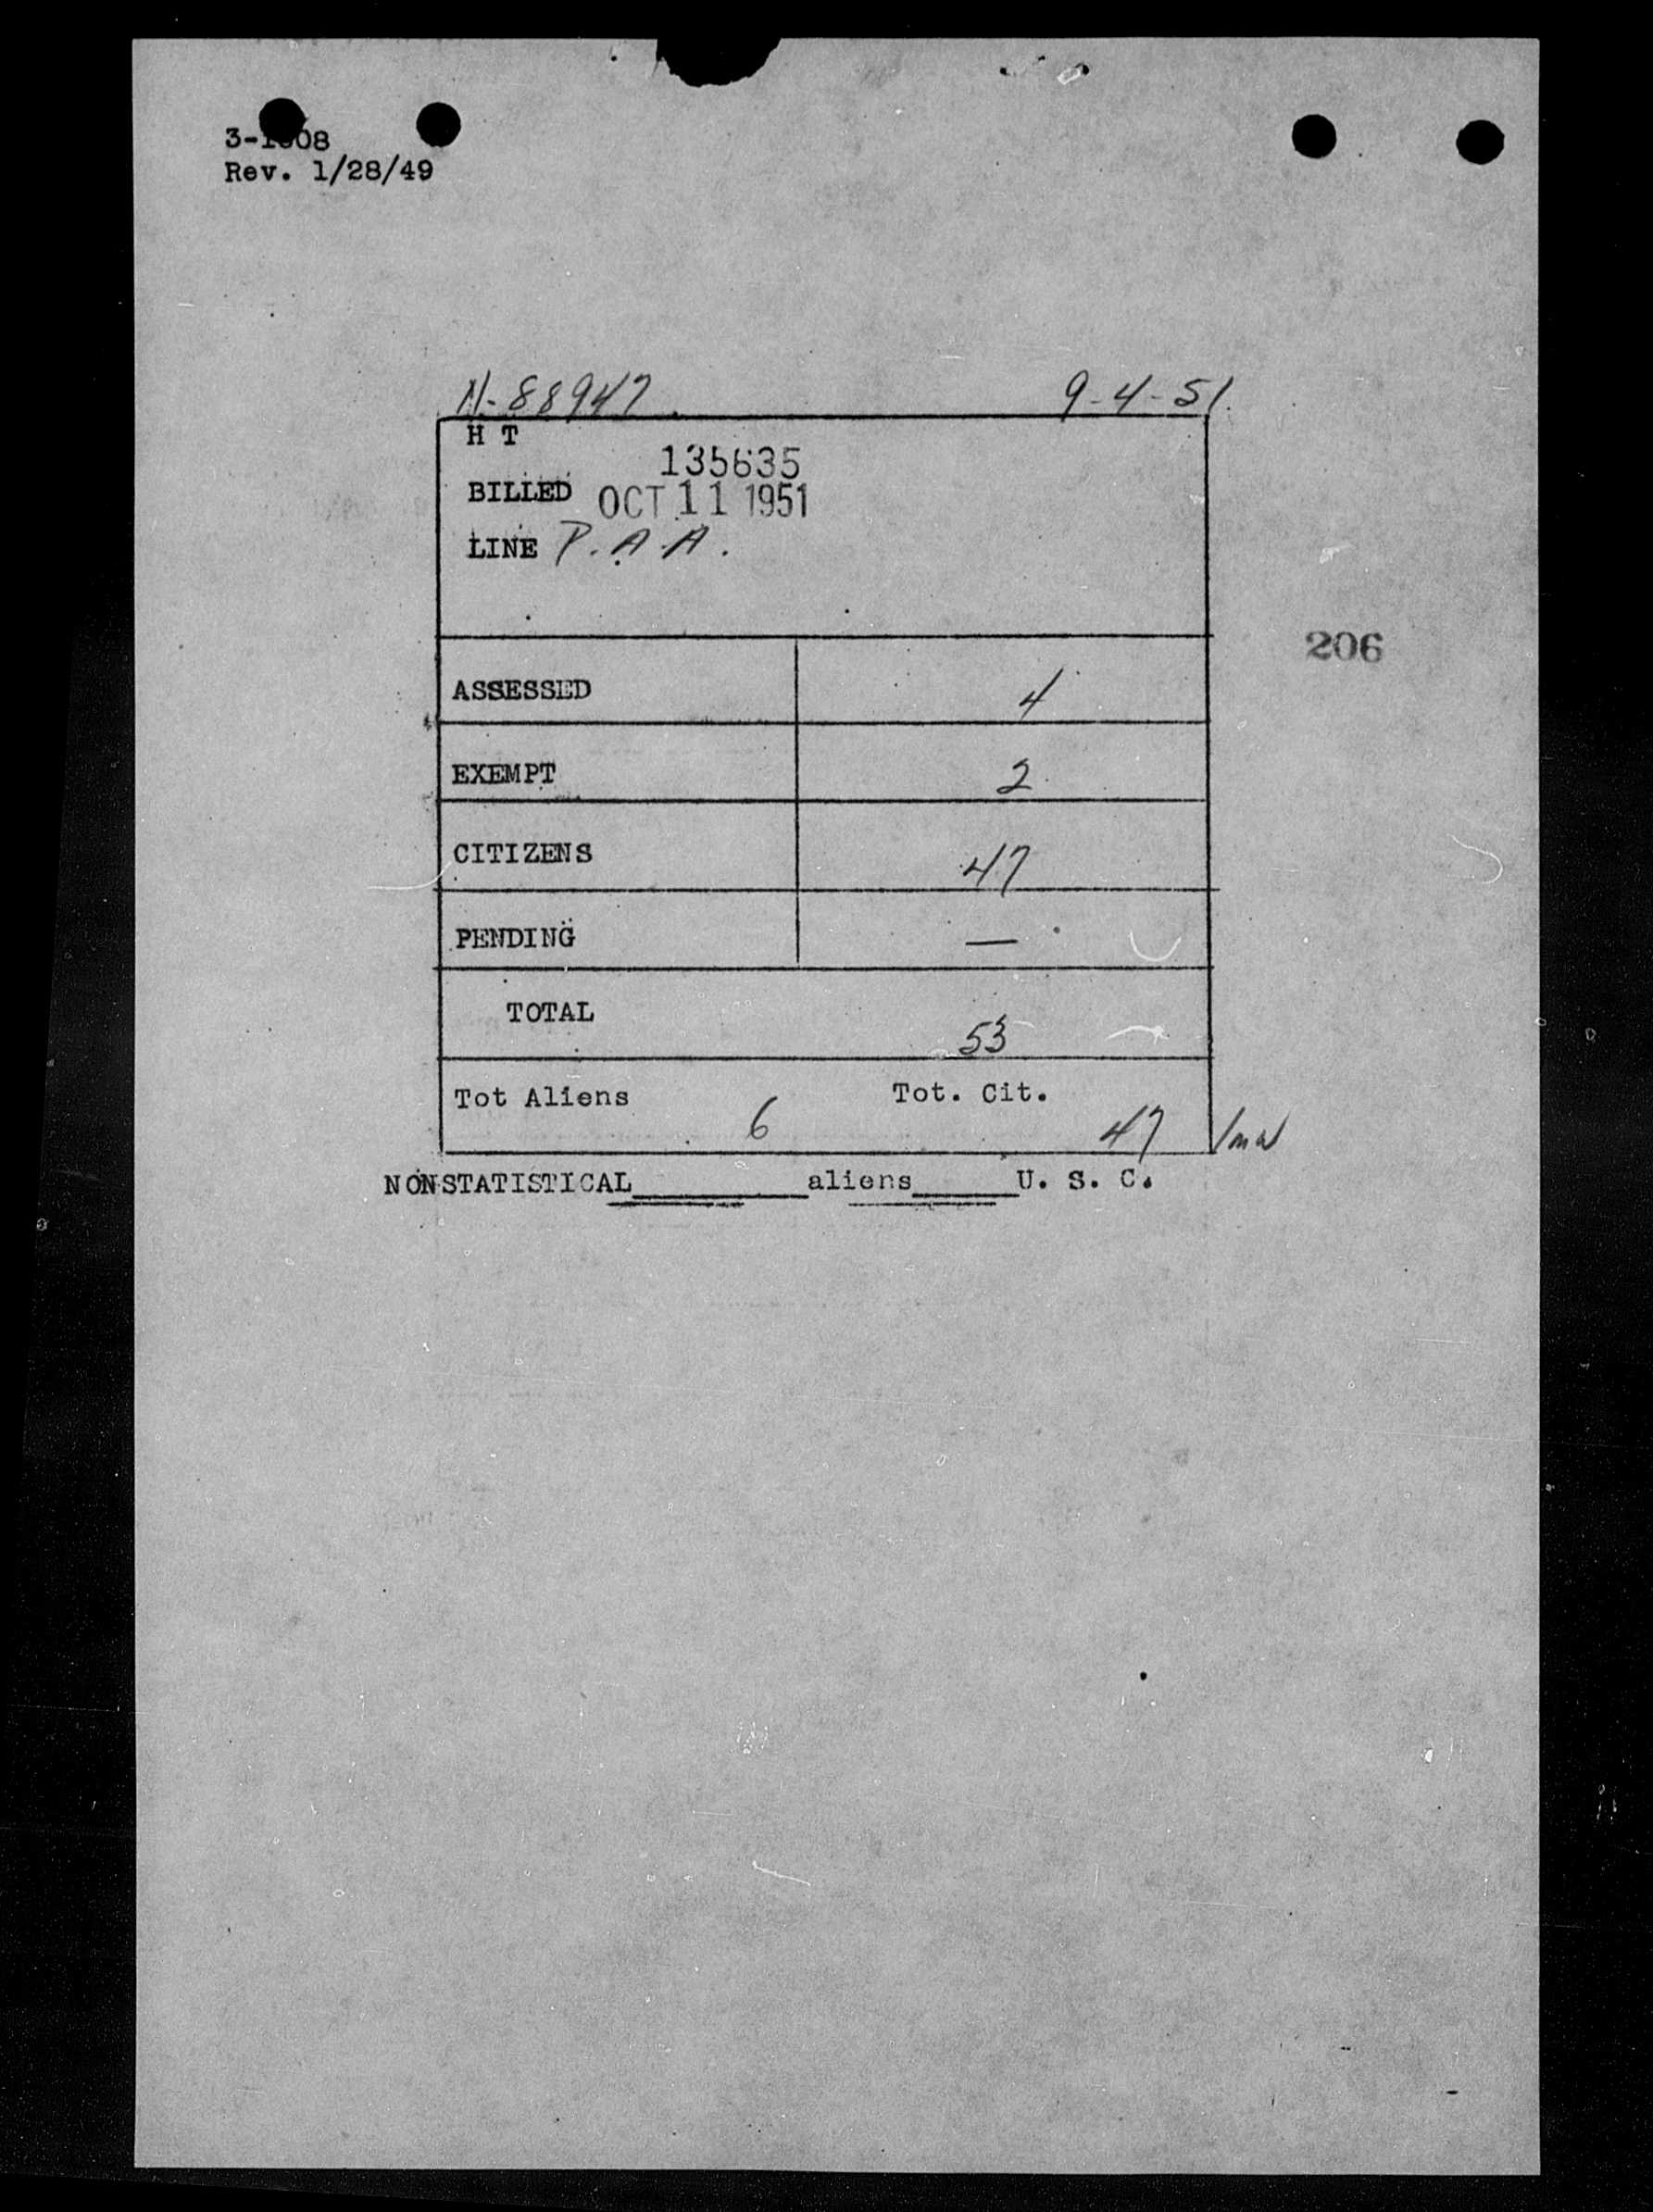 Rev. 1/28/49
N-88947 9-4-51
H T
135635
BILLED OCT 11 1951
LINE P.A.A.
206
ASSESSED 4
EXEMPT 2
CITIZENS 47
PENDING —
TOTAL 53
Tot Aliens 6 Tot. Cit. 47
NONSTATISTICAL________aliens_____U. S. C.